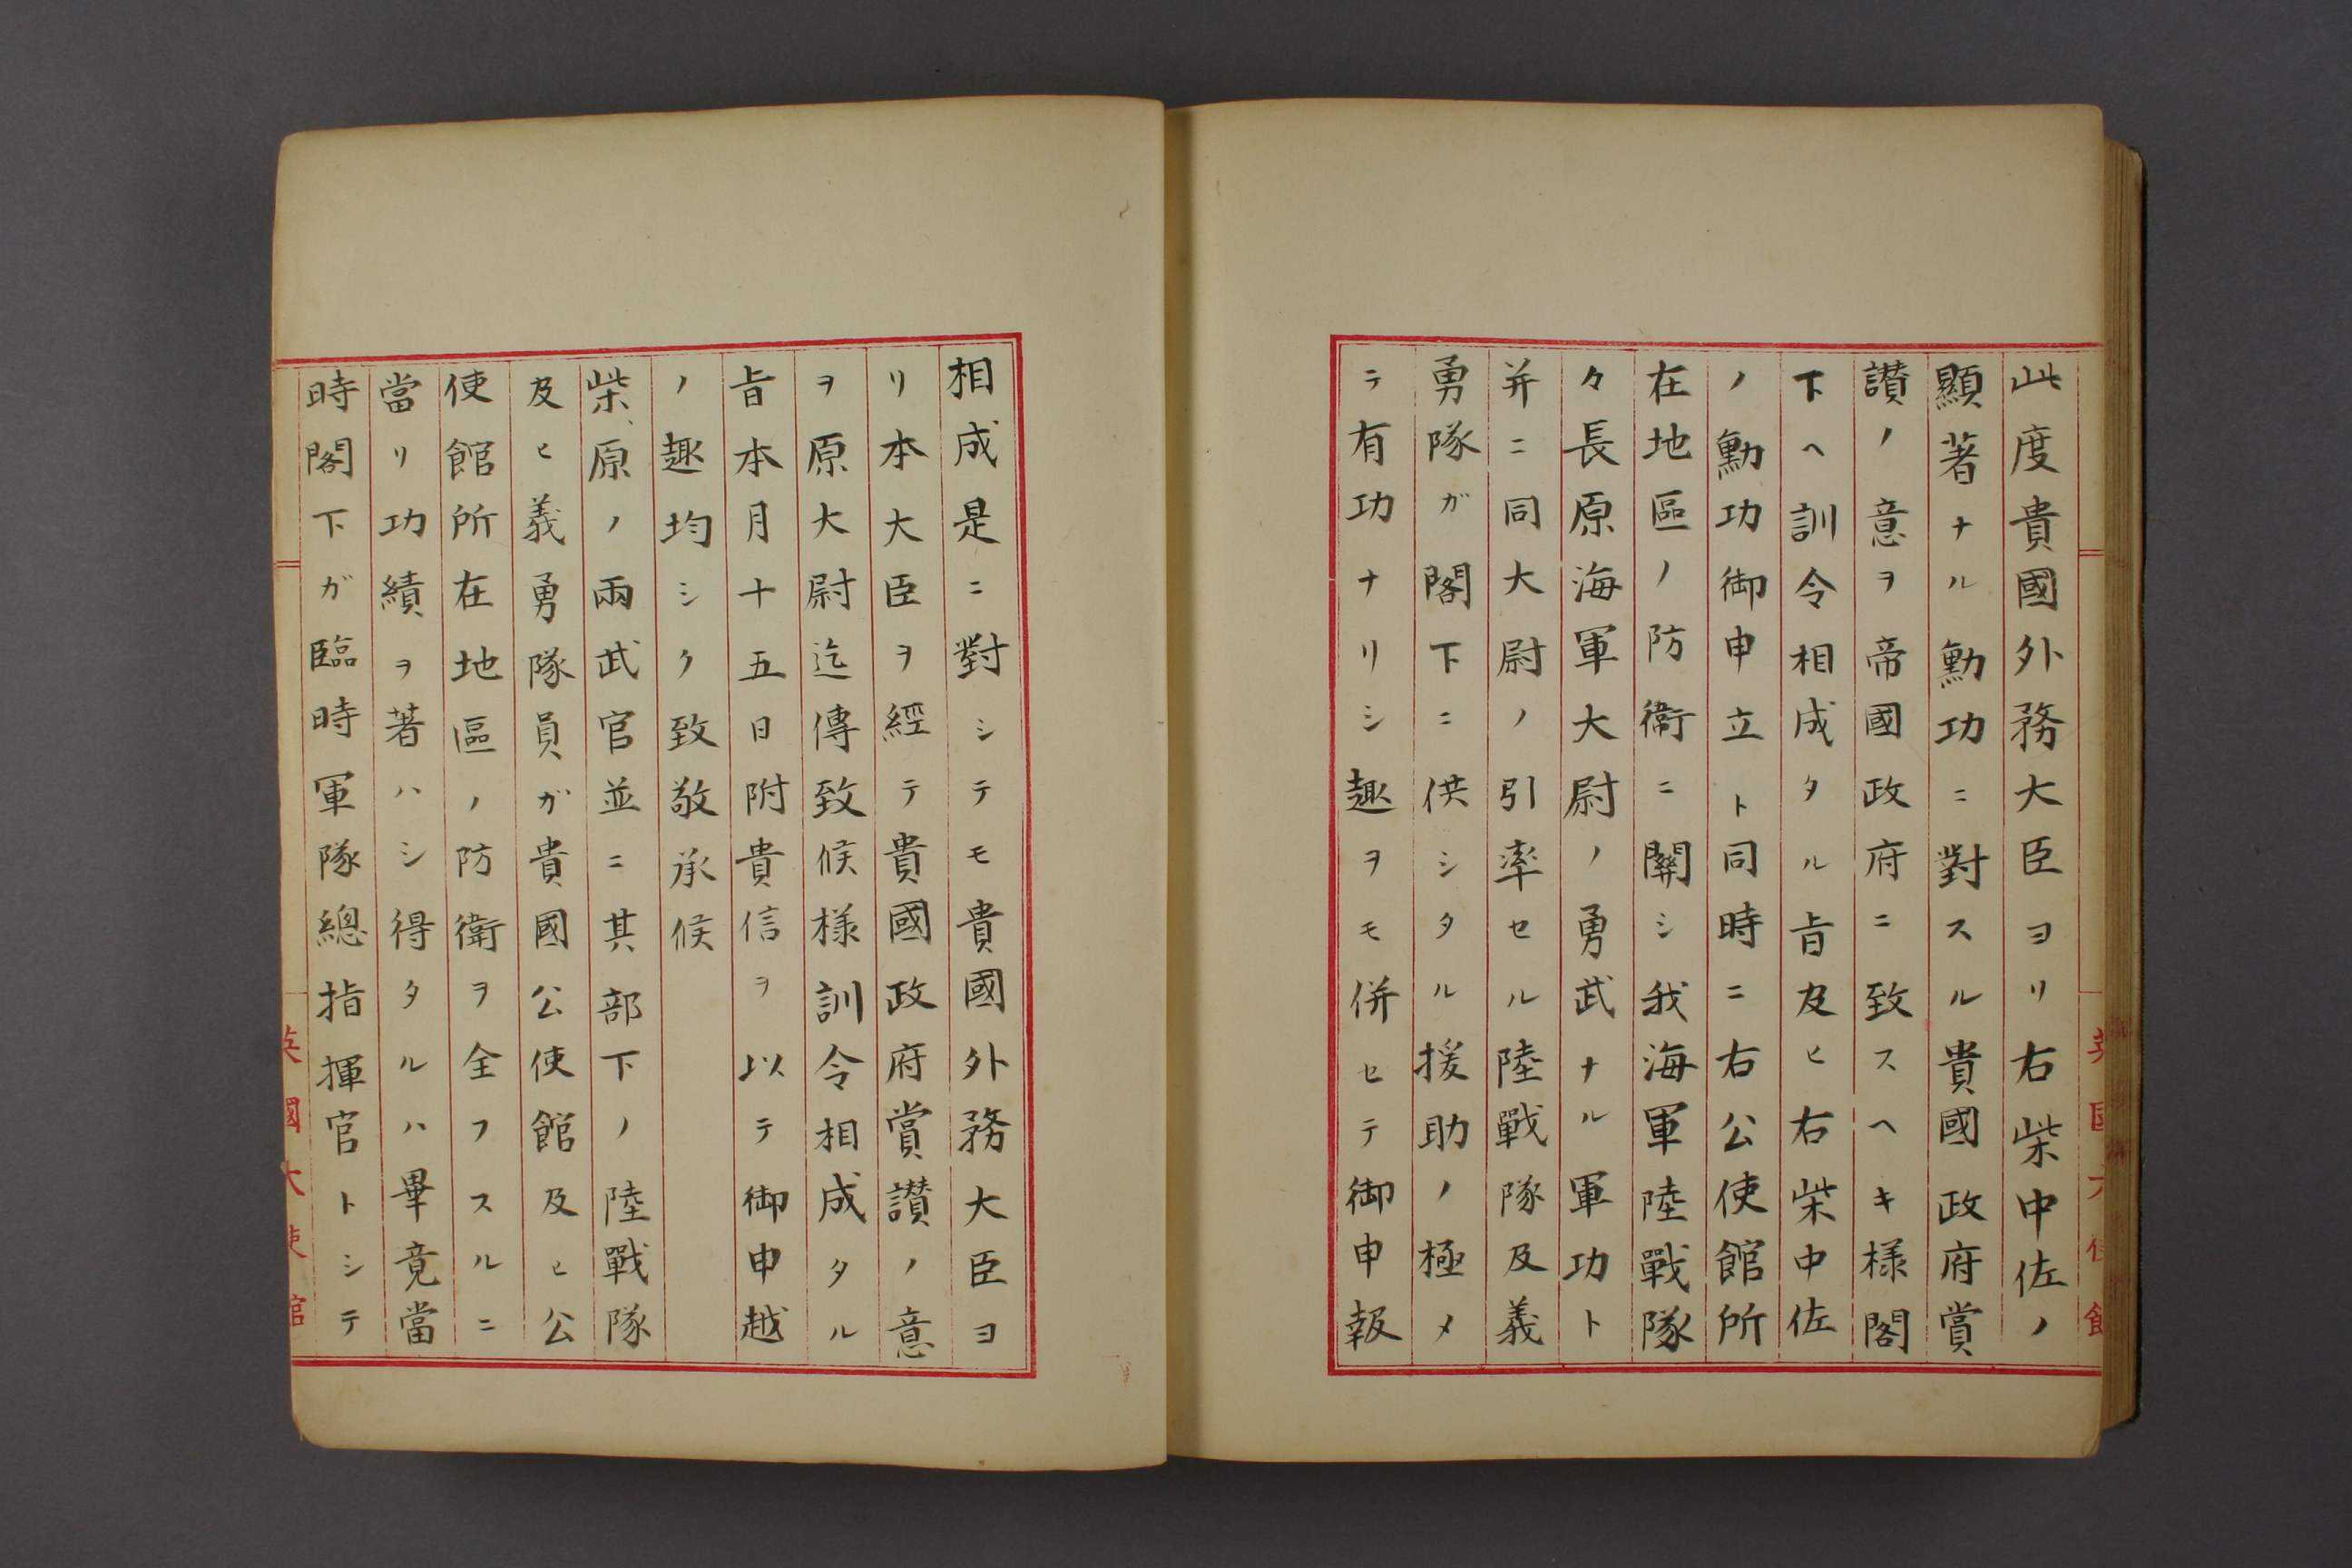 此度貴國外務大臣ヨリ右柴中佐ノ
顯著ナル勳功ニ對スル貴國政府賞
讃ノ意ヲ帝國政府ニ致スヘキ樣閣
下ヘ訓令相成タル旨及ヒ右柴中佐
ノ勳功御申立ト同時ニ右公使館所
在地區ノ防衞ニ關シ我海軍陸戰隊
々長原海軍大尉ノ勇武ナル軍功ト
并ニ同大尉ノ引率セル陸戰隊及義
勇隊ガ閣下ニ供シタル援助ノ極メ
テ有功ナリシ趣ヲモ併セテ御申報
相成是ニ對シテモ貴國外務大臣ヨ
リ本大臣ヲ經テ貴國政府賞讃ノ意
ヲ原大尉迄傳致候樣訓令相成タル
旨本月十五日附貴信ヲ以テ御申越
ノ趣均シク致敬承候
柴、原ノ兩武官並ニ其部下ノ陸戰隊
及ヒ義勇隊員ガ貴國公使館及ヒ公
使館所在地區ノ防衛ヲ全フスルニ
當リ功績ヲ著ハシ得タルハ畢竟當
時閣下ガ臨時軍隊總指揮官トシテ
英國大使館